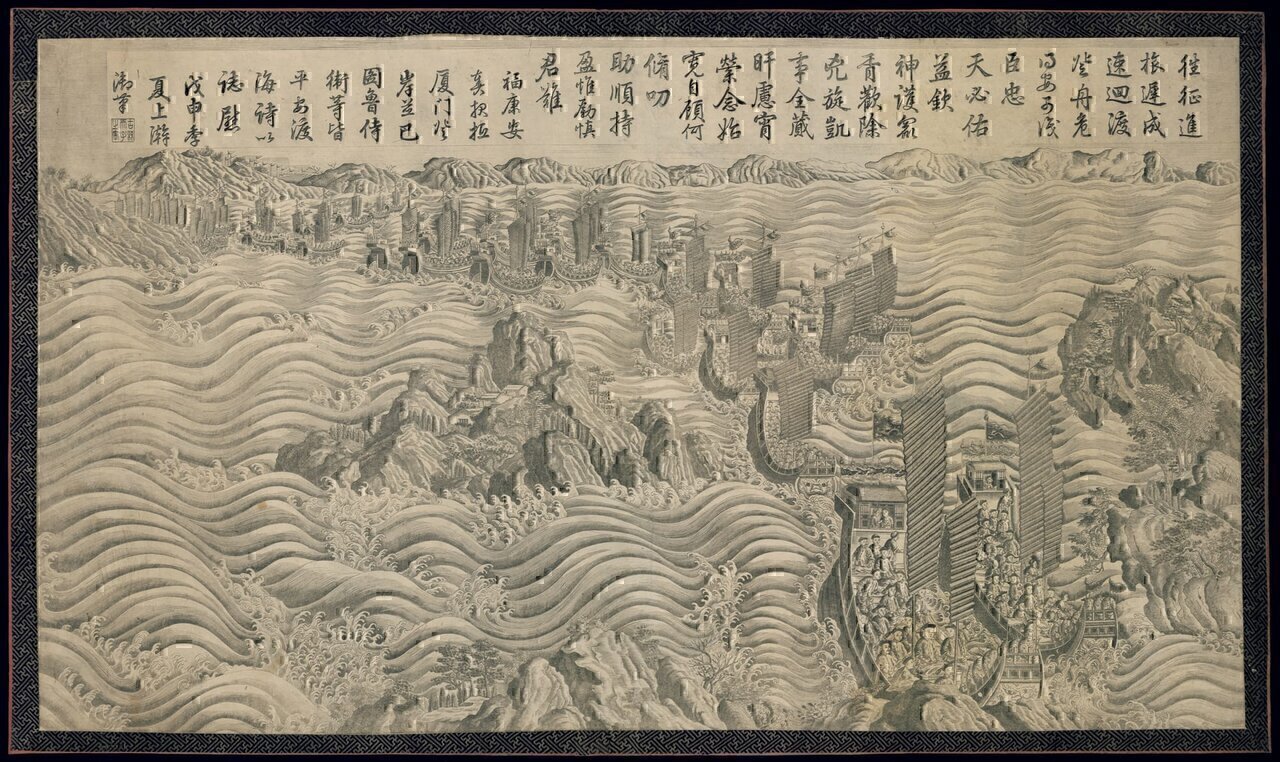 往征進
旅遲成
速迴渡
登舟危
得安可識
臣忠
天必佑
益欽
神護衆
胥歡除
兇旋凱
事全蕆
旰慮宵
縈念始
寬自顧何
脩叨
助順持
盈惟勵慎
君難
福康安
奏報於
厦门登
岸並巴
圖魯侍
衛等皆
平安渡
海詩以
誌慰
戊申季
夏上澣
御筆